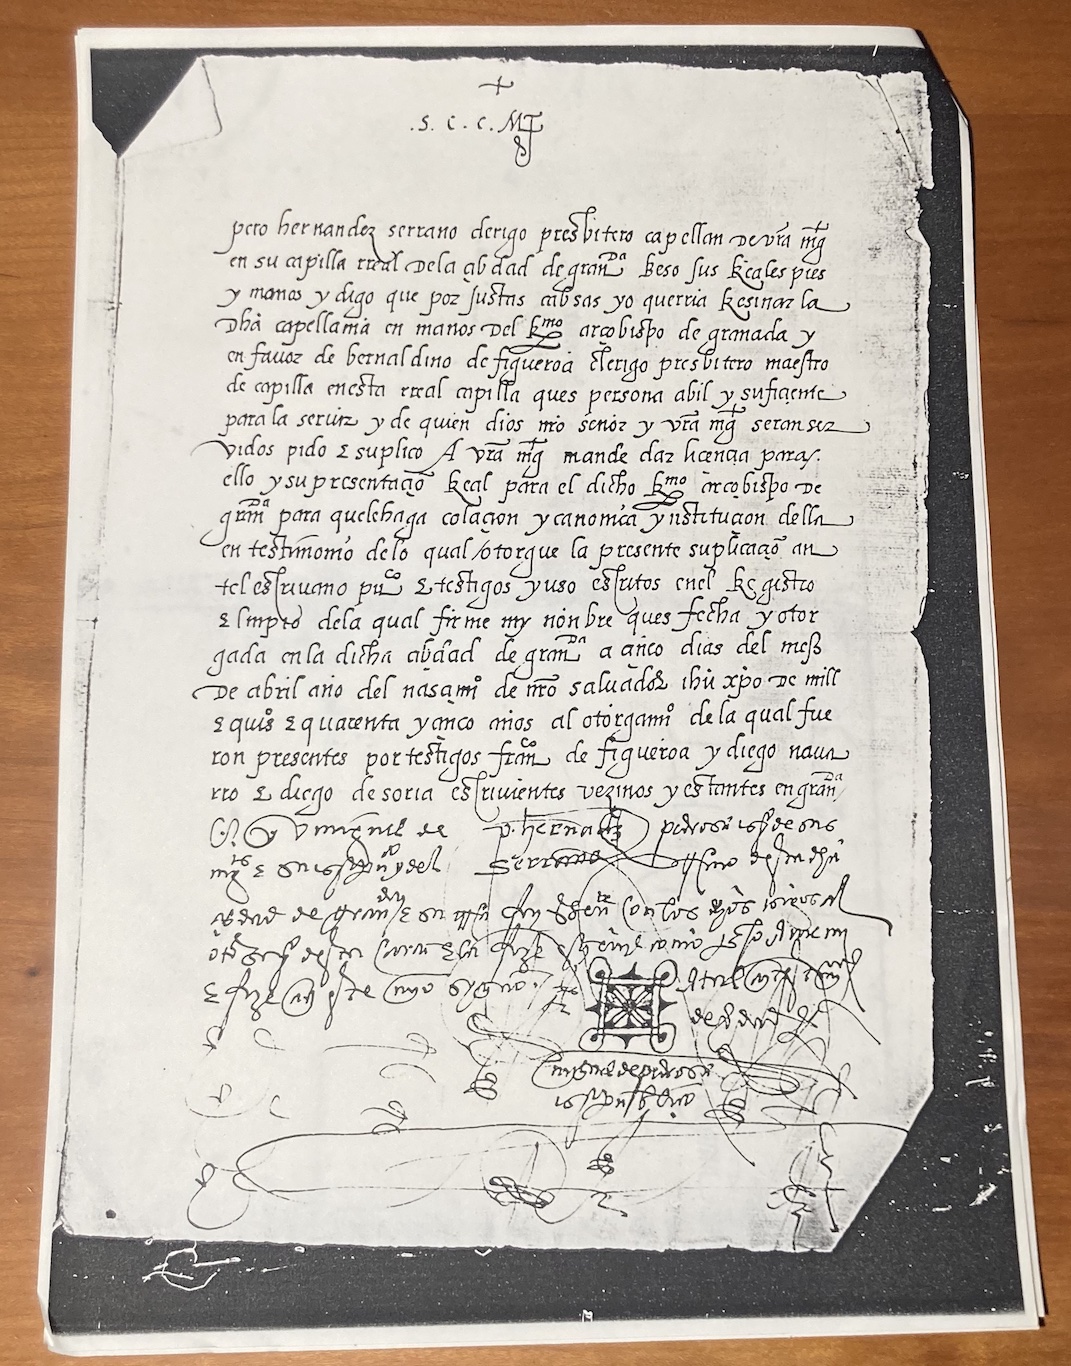 +
.S. C. C. Mt
pero hernandez serrano clerigo presbitero capellan de vra mgt
en su capilla rreal dela cibdad de granda beso sus Reales pies
y manos y digo que por justas cabsas yo querria Resinar la
dha capellania en manos del Rmo arcobispo de granada y
en favor de bernaldino de figueroa clerigo presbitero maestro
de capilla enesta rreal capilla ques persona abil y suficiente
para la servir y de quien dios nro señor y vra mgt seran ser
vidos pido E suplico A vra mgt mande dar licencia para
ello y su presentacio Real para el dicho Rmo arcobispo de
granda para quelehaga colacion y canonica ynstitucion della
en testimonio delo qual otorgue la presente suplicacio an
tel escrivano puco E testigos yuso escritos enel Registro
E impto dela qual firme my nonbre ques fecha y otor
gada enla dicha cibdad de granda a cinco dias del mes
de abril año del nascimio de nro salvador ihu xpo de mill
E quios E quarenta y cinco años al otorgamio dela qual fue
ron presentes por testigos franco de figueroa y diego nava
rro E diego de soria escrivientes vezinos y estantes en granda
miguel de p. herna pedrosa de sus
serrano
de granda
E fize mio signo
de verdad
miguel de pedrosa